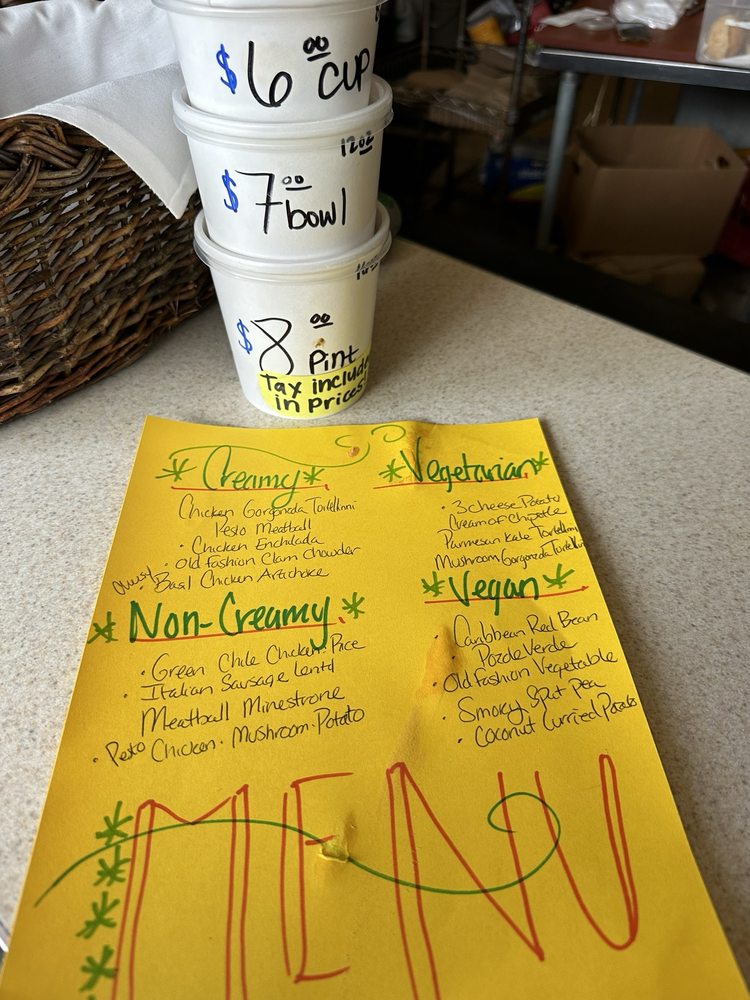 $6.00 CUP
12oz
$7.00 bowl
$8.00 Pint
Tax include
in Prices!
*Creamy*
Chicken Gorgonzola Tortellini
Pesto Meatball
• Chicken Enchilada
• Old Fashion Clam Chowder
Cheesy • Basil Chicken Artichoke
*Vegetarian*
• 3 cheese Potato
Cream of Chipotle
Parmesan Kale Tortellini
Mushroom Gorgonzola Tortellini
*Non-Creamy*
• Green Chile Chicken • Rice
• Italian Sausage Lentil
Meatball Minestrone
• Pesto Chicken • Mushroom • Potato
*Vegan*
• Caribbean Red Bean
• Pozole Verde
• Old Fashion Vegetable
• Smoky Split Pea
• Coconut Curried Potato
MENU